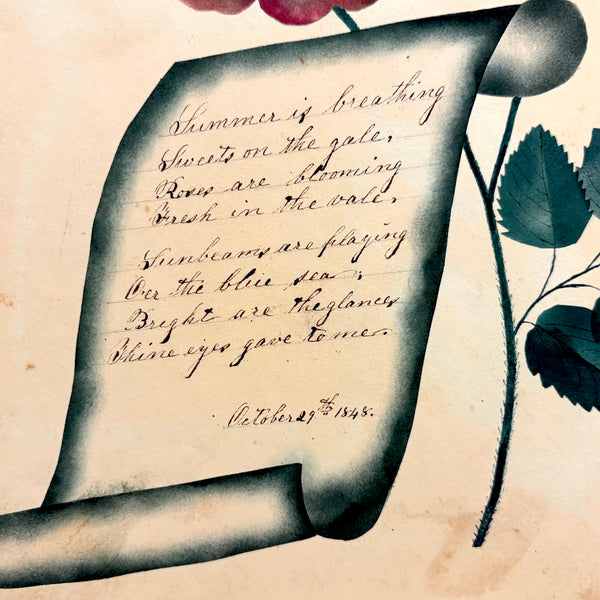 Summer is breathing
Sweets on the gale,
Roses are blooming
Fresh in the vale,
Sunbeams are playing
Oer the blue sea,
Bright are the glances
Thine eyes gave to me.
October 29th 1848.